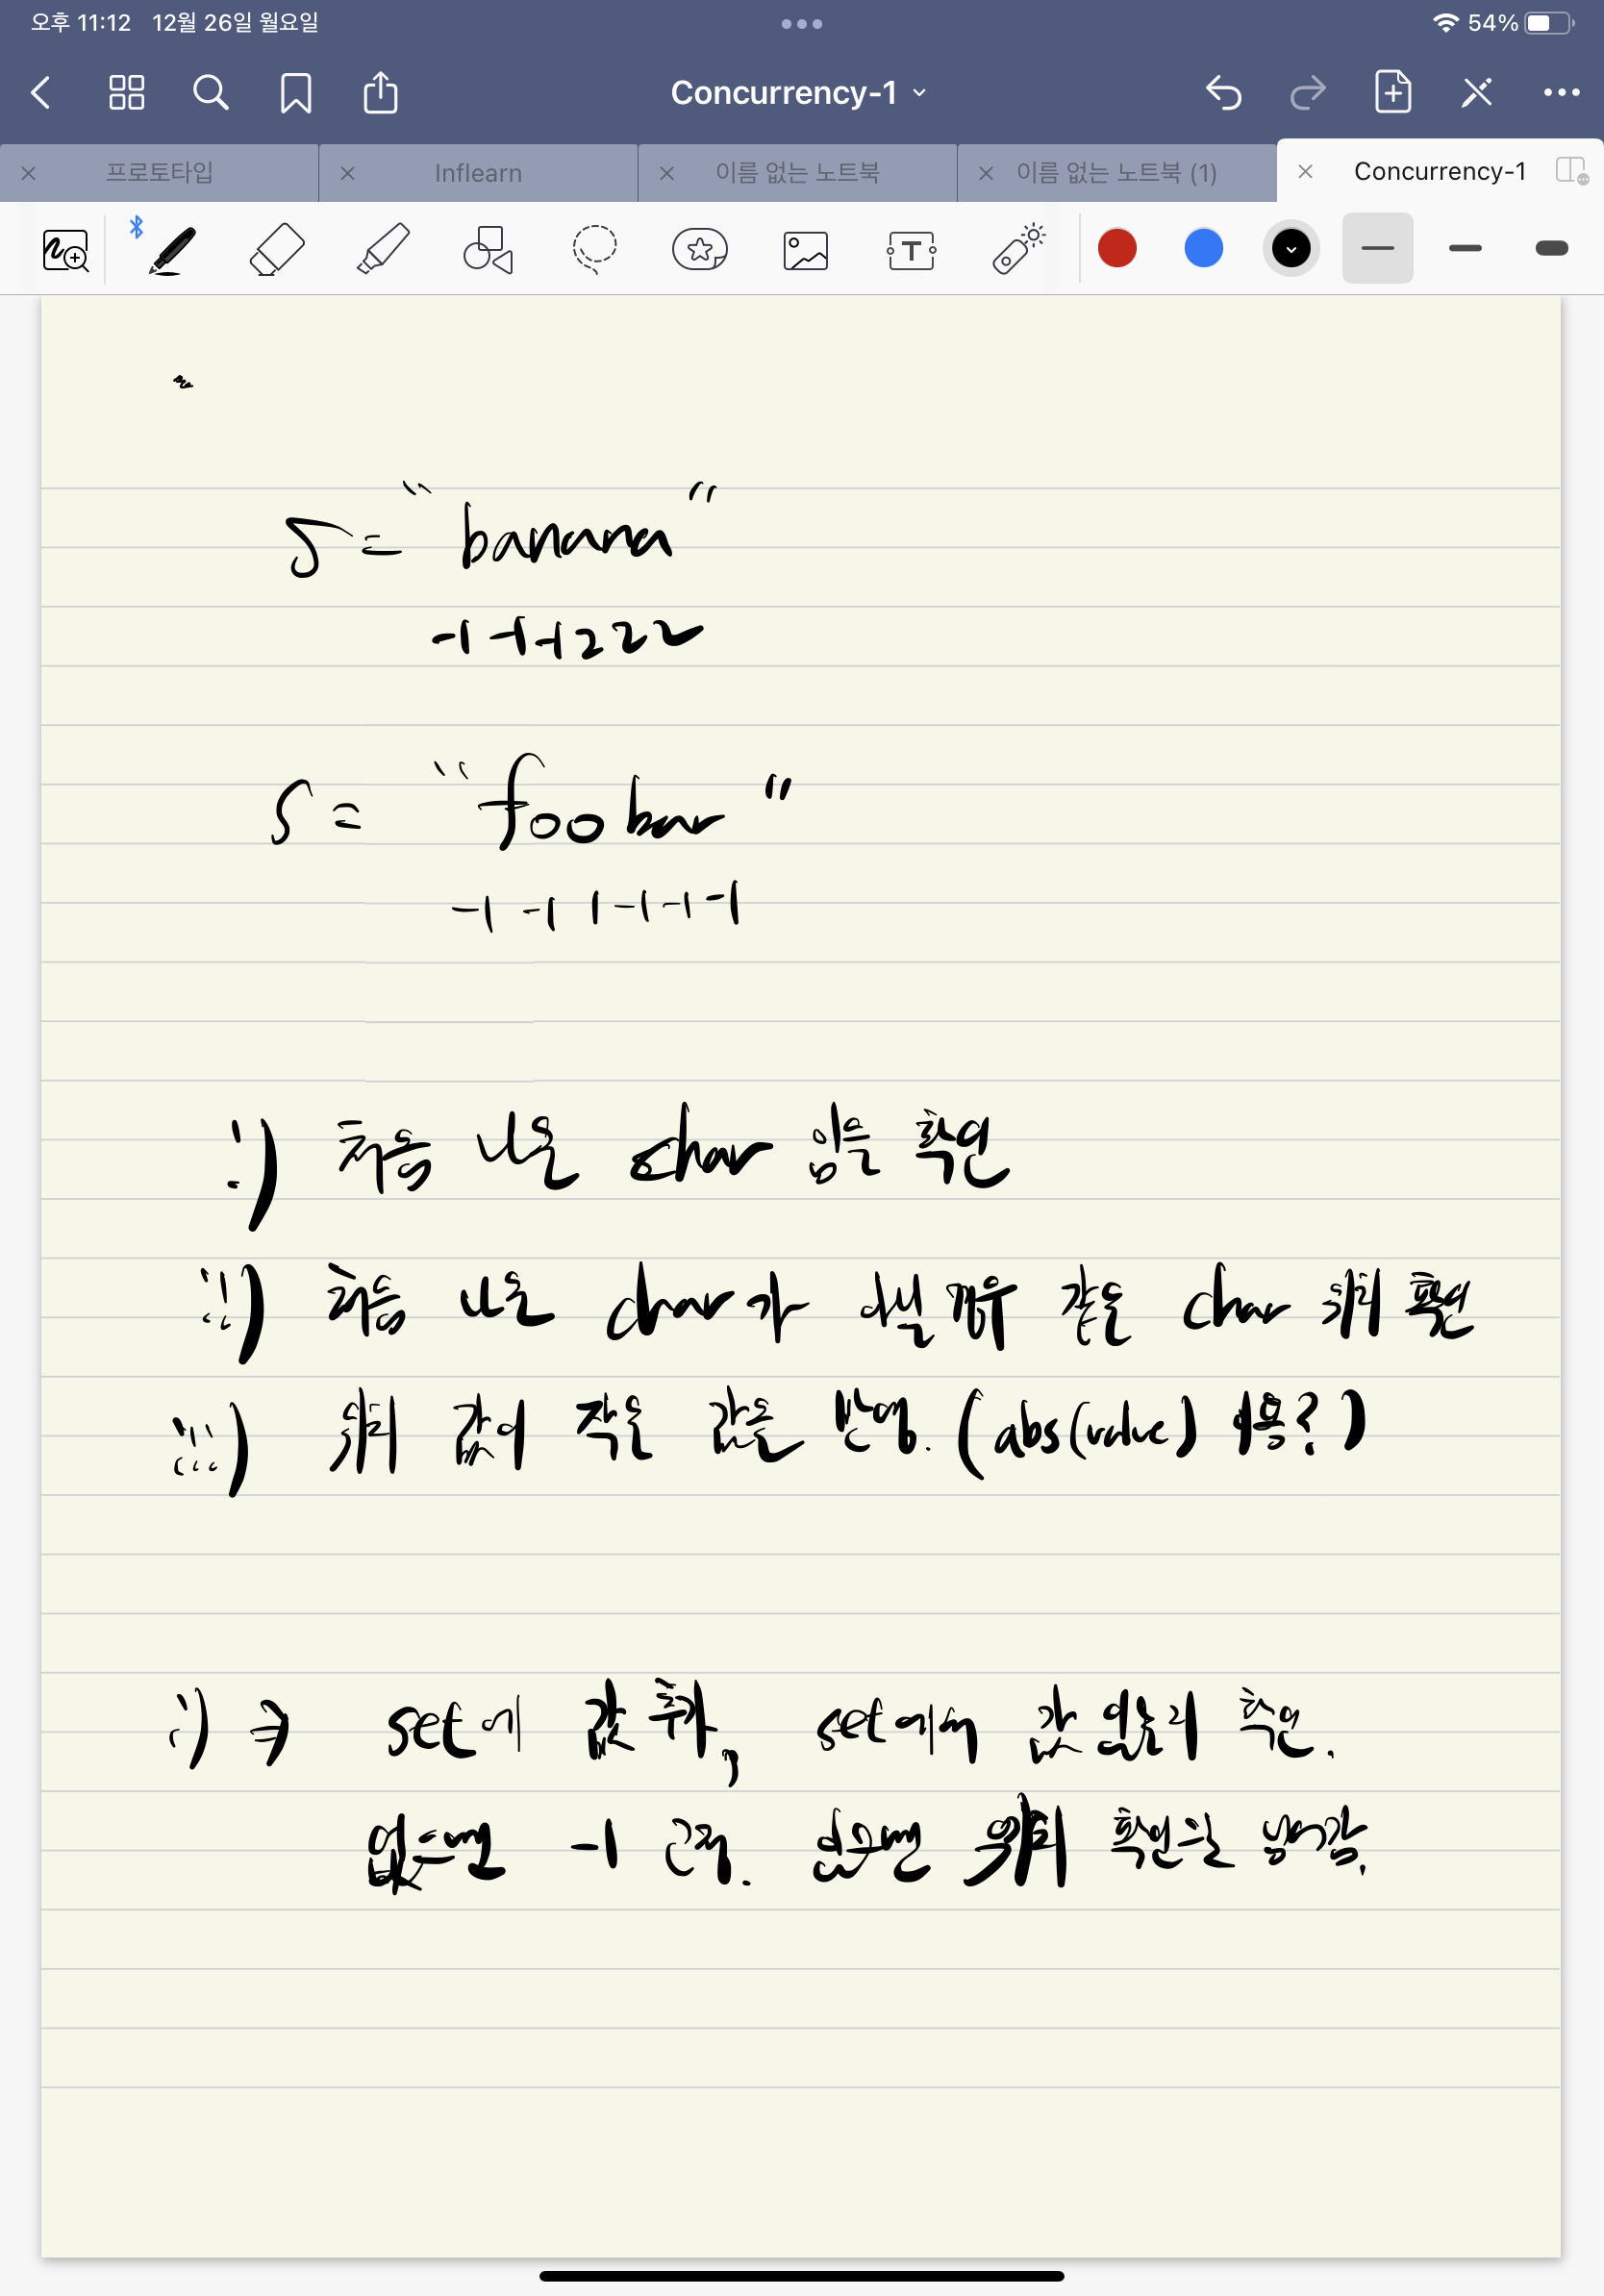 오후 11:12 12월 26일 월요일 54%
Concurrency-1
프로토타입 Inflearn 이름 없는 노트북 이름 없는 노트북 (1) Concurrency-1
T
s = "banana"
-1 -1 -1 2 2 2
s = "foobar"
-1 -1 1 -1 -1 -1
i) 처음 나온 char 임을 확인
ii) 처음 나온 char가 아닐 경우 같은 char 위치 확인
iii) 위치 값이 작은 값을 반영. (abs(value) 이용?)
i) ⇒ set에 값 추가, set에서 값 있는지 확인.
없으면 -1 고정. 있으면 위치 확인으로 넘어감.